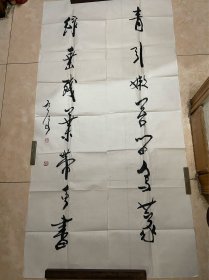 青引嫩苔留鸟篆
绿垂残叶带虫书